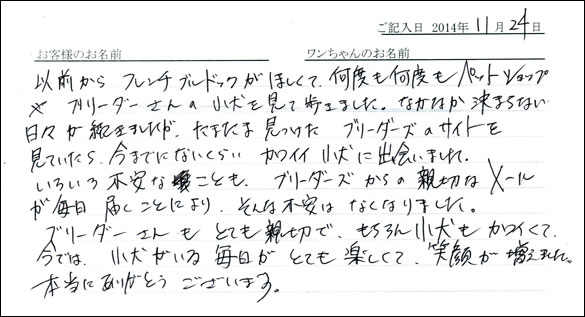 ご記入日 2014年11月24日
お客様のお名前 ワンちゃんのお名前
以前から フレンチブルドックがほしくて、何度も何度もペットショップ
や ブリーダーさんの小犬を見て歩きました。なかなか決まらない
日々が続きましたが、たまたま見つけた ブリーダーズのサイトを
見ていたら、今までにないくらい カワイイ小犬に出会いました。
いろいろ不安なことも、ブリーダーズからの親切なメール
が毎日届くことにより、そんな不安はなくなりました。
ブリーダーさんもとても親切で、もちろん小犬もかわいくて、
今では、小犬がいる毎日がとても楽しくて、笑顔が増えました。
本当にありがとうございます。